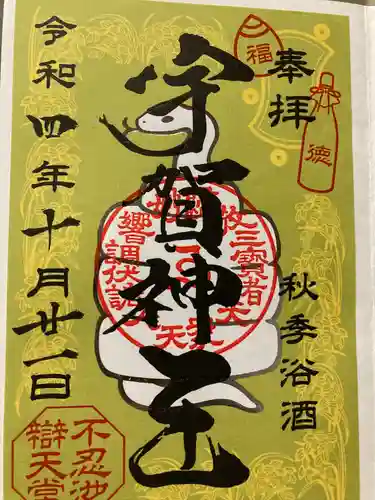 奉拝
福
德
秋季浴酒
宇賀神王
令和四年十月廿一日
不忍池
辯天堂